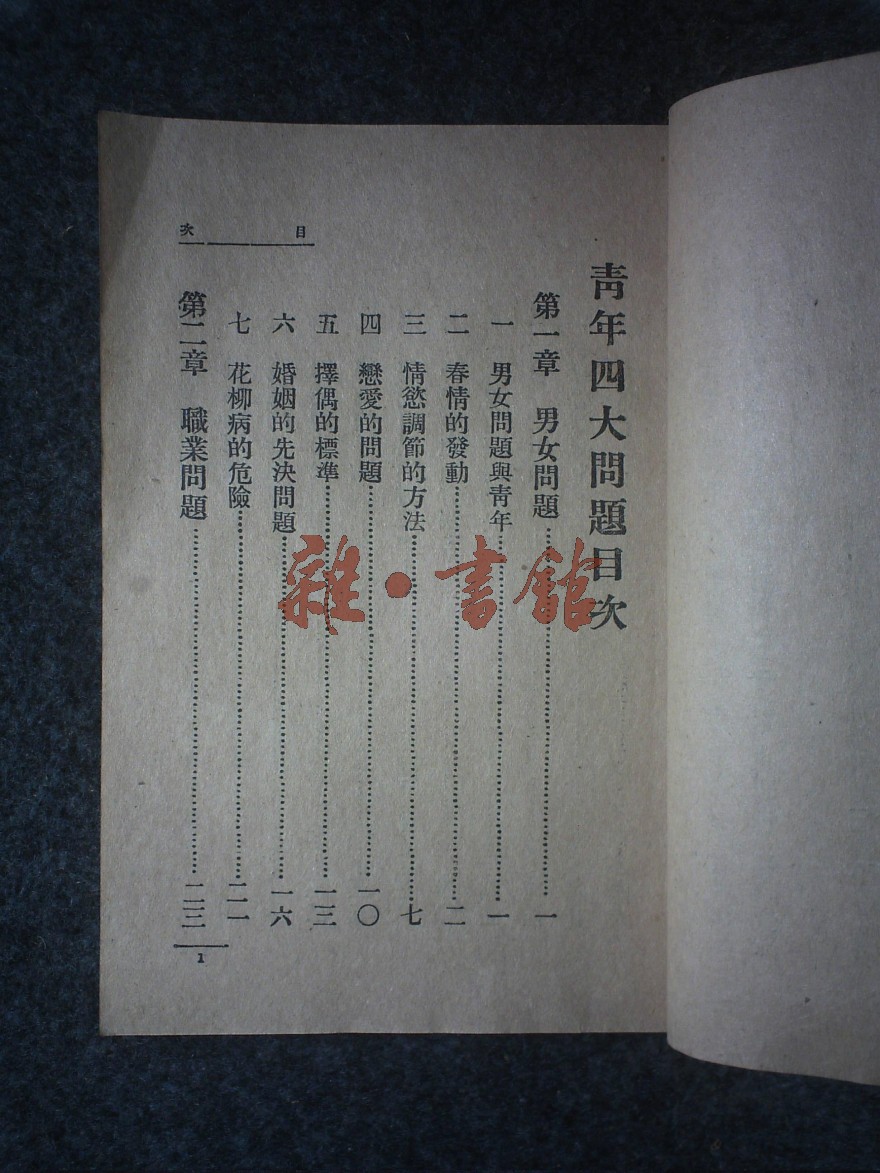 目次
青年四大問題目次
第一章　男女問題……一
一　男女問題與青年……一
二　春情的發動……二
三　情慾調節的方法……七
四　戀愛的問題……一〇
五　擇偶的標準……一三
六　婚姻的先決問題……一六
七　花柳病的危險……二一
第二章　職業問題……二三
1
雜·書館